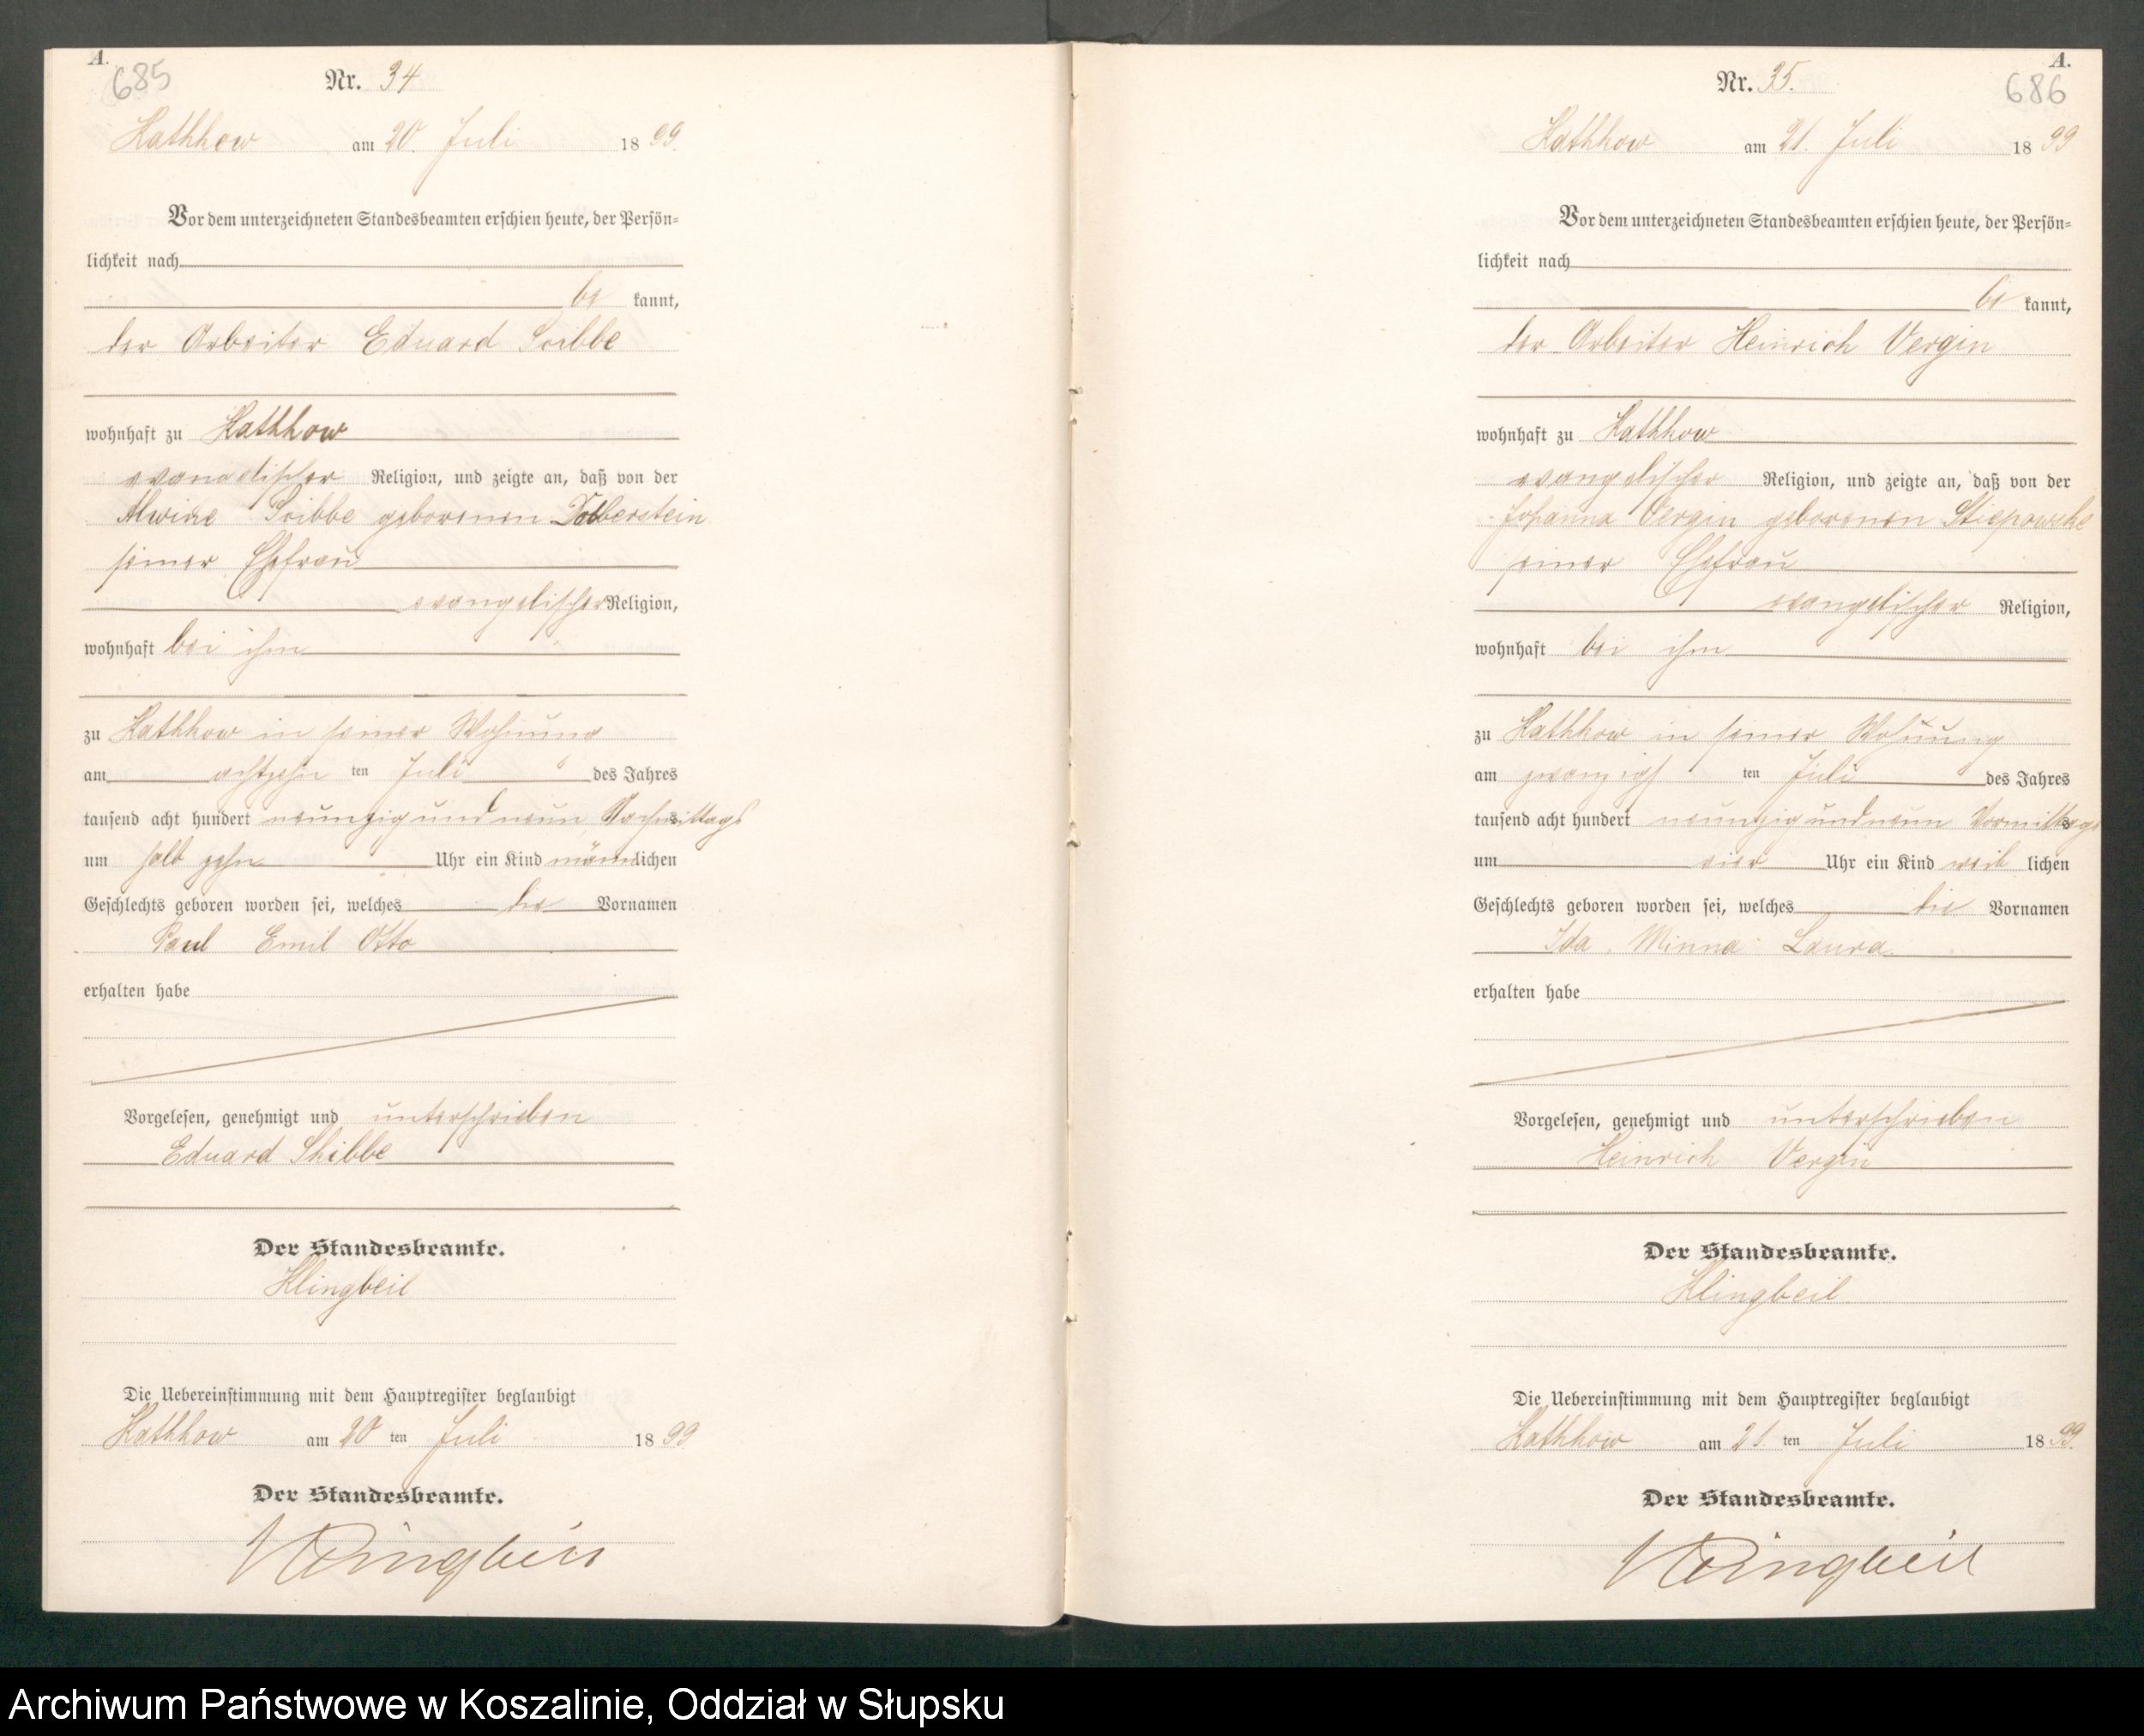 A.
685
Nr. 34
Kathkow am 20. Juli 1899.
Vor dem unterzeichneten Standesbeamten erschien heute, der Persön-
lichkeit nach
be kannt,
der Arbeiter Eduard
wohnhaft zu Kathkow
evangelischer Religion, und zeigte an, daß von der
Alwine geborenen
seiner Ehefrau
evangelischer Religion,
wohnhaft bei ihm
zu Kathkow in seiner Wohnung
am achtzehn ten Juli des Jahres
tausend acht hundert neunzig und neun Nachmittags
um halb zehn Uhr ein Kind männlichen
Geschlechts geboren worden sei, welches die Vornamen
Paul Emil Otto
erhalten habe
Vorgelesen, genehmigt und unterschrieben
Eduard Skibbe
Der Standesbeamte.
Klingbeil
Die Uebereinstimmung mit dem Hauptregister beglaubigt
Kathkow am 20 ten Juli 1899
Der Standesbeamte.
Klingbeil
A.
686
Nr. 35.
Kathkow am 21. Juli 1899
Vor dem unterzeichneten Standesbeamten erschien heute, der Persön-
lichkeit nach
be kannt,
der Arbeiter Heinrich Vergin
wohnhaft zu Kathkow
evangelischer Religion, und zeigte an, daß von der
Johanna Vergin geborenen
seiner Ehefrau
evangelischer Religion,
wohnhaft bei ihm
zu Kathkow in seiner Wohnung
am zwanzigs ten Juli des Jahres
tausend acht hundert neunzig und neun Vormittags
um vier Uhr ein Kind weib lichen
Geschlechts geboren worden sei, welches die Vornamen
Ida Minna Laura
erhalten habe
Vorgelesen, genehmigt und unterschrieben
Heinrich Vergin
Der Standesbeamte.
Klingbeil.
Die Uebereinstimmung mit dem Hauptregister beglaubigt
Kathkow am 21. ten Juli 1899.
Der Standesbeamte.
Klingbeil
Archiwum Państwowe w Koszalinie, Oddział w Słupsku